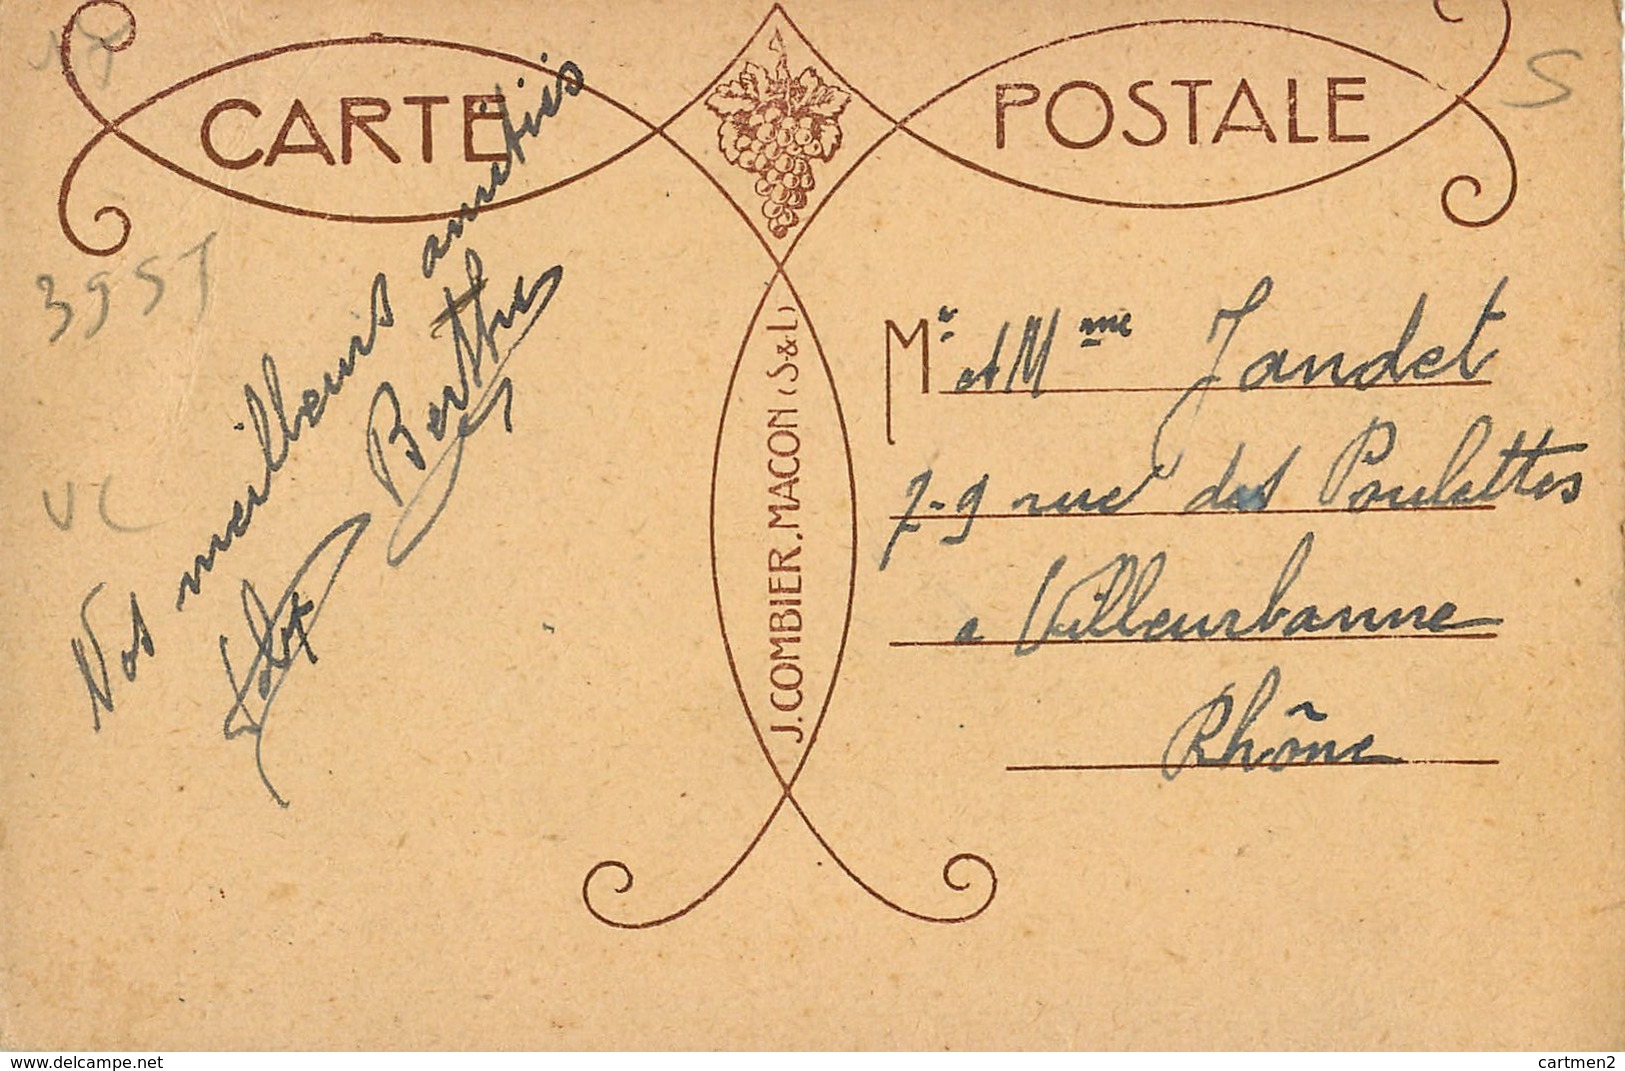 CARTE POSTALE
S
3951
Nos meilleurs amitiés
Berthes
UC
J. COMBIER. MACON (S-&-L)
Mr et Mme Jandet
7-9 rue des Poulettes
a Villeurbanne
Rhône
www.delcampe.net
cartmen2